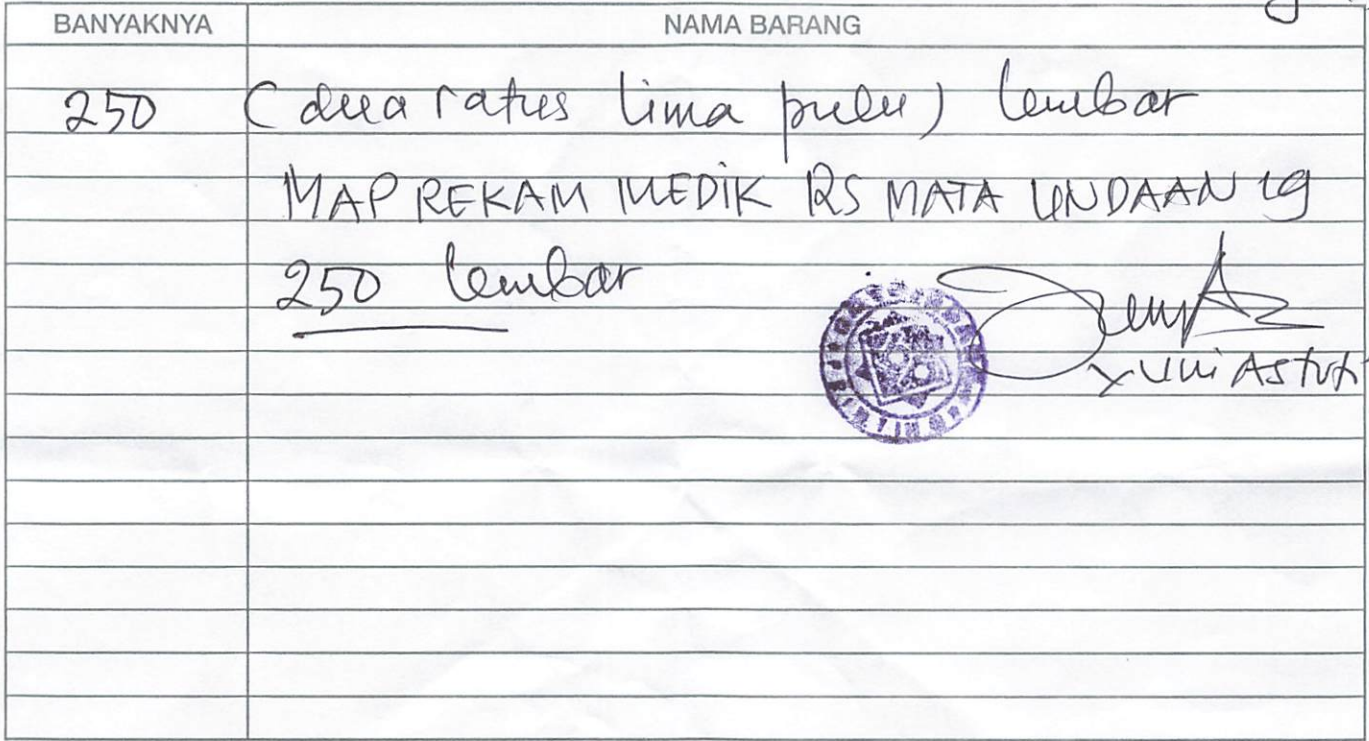 BANYAKNYA NAMA BARANG
250 (dua ratus lima pulu) lembar
MAP REKAM MEDIK RS MATA UNDAAN 19
250 lembar
Yuni Astuti